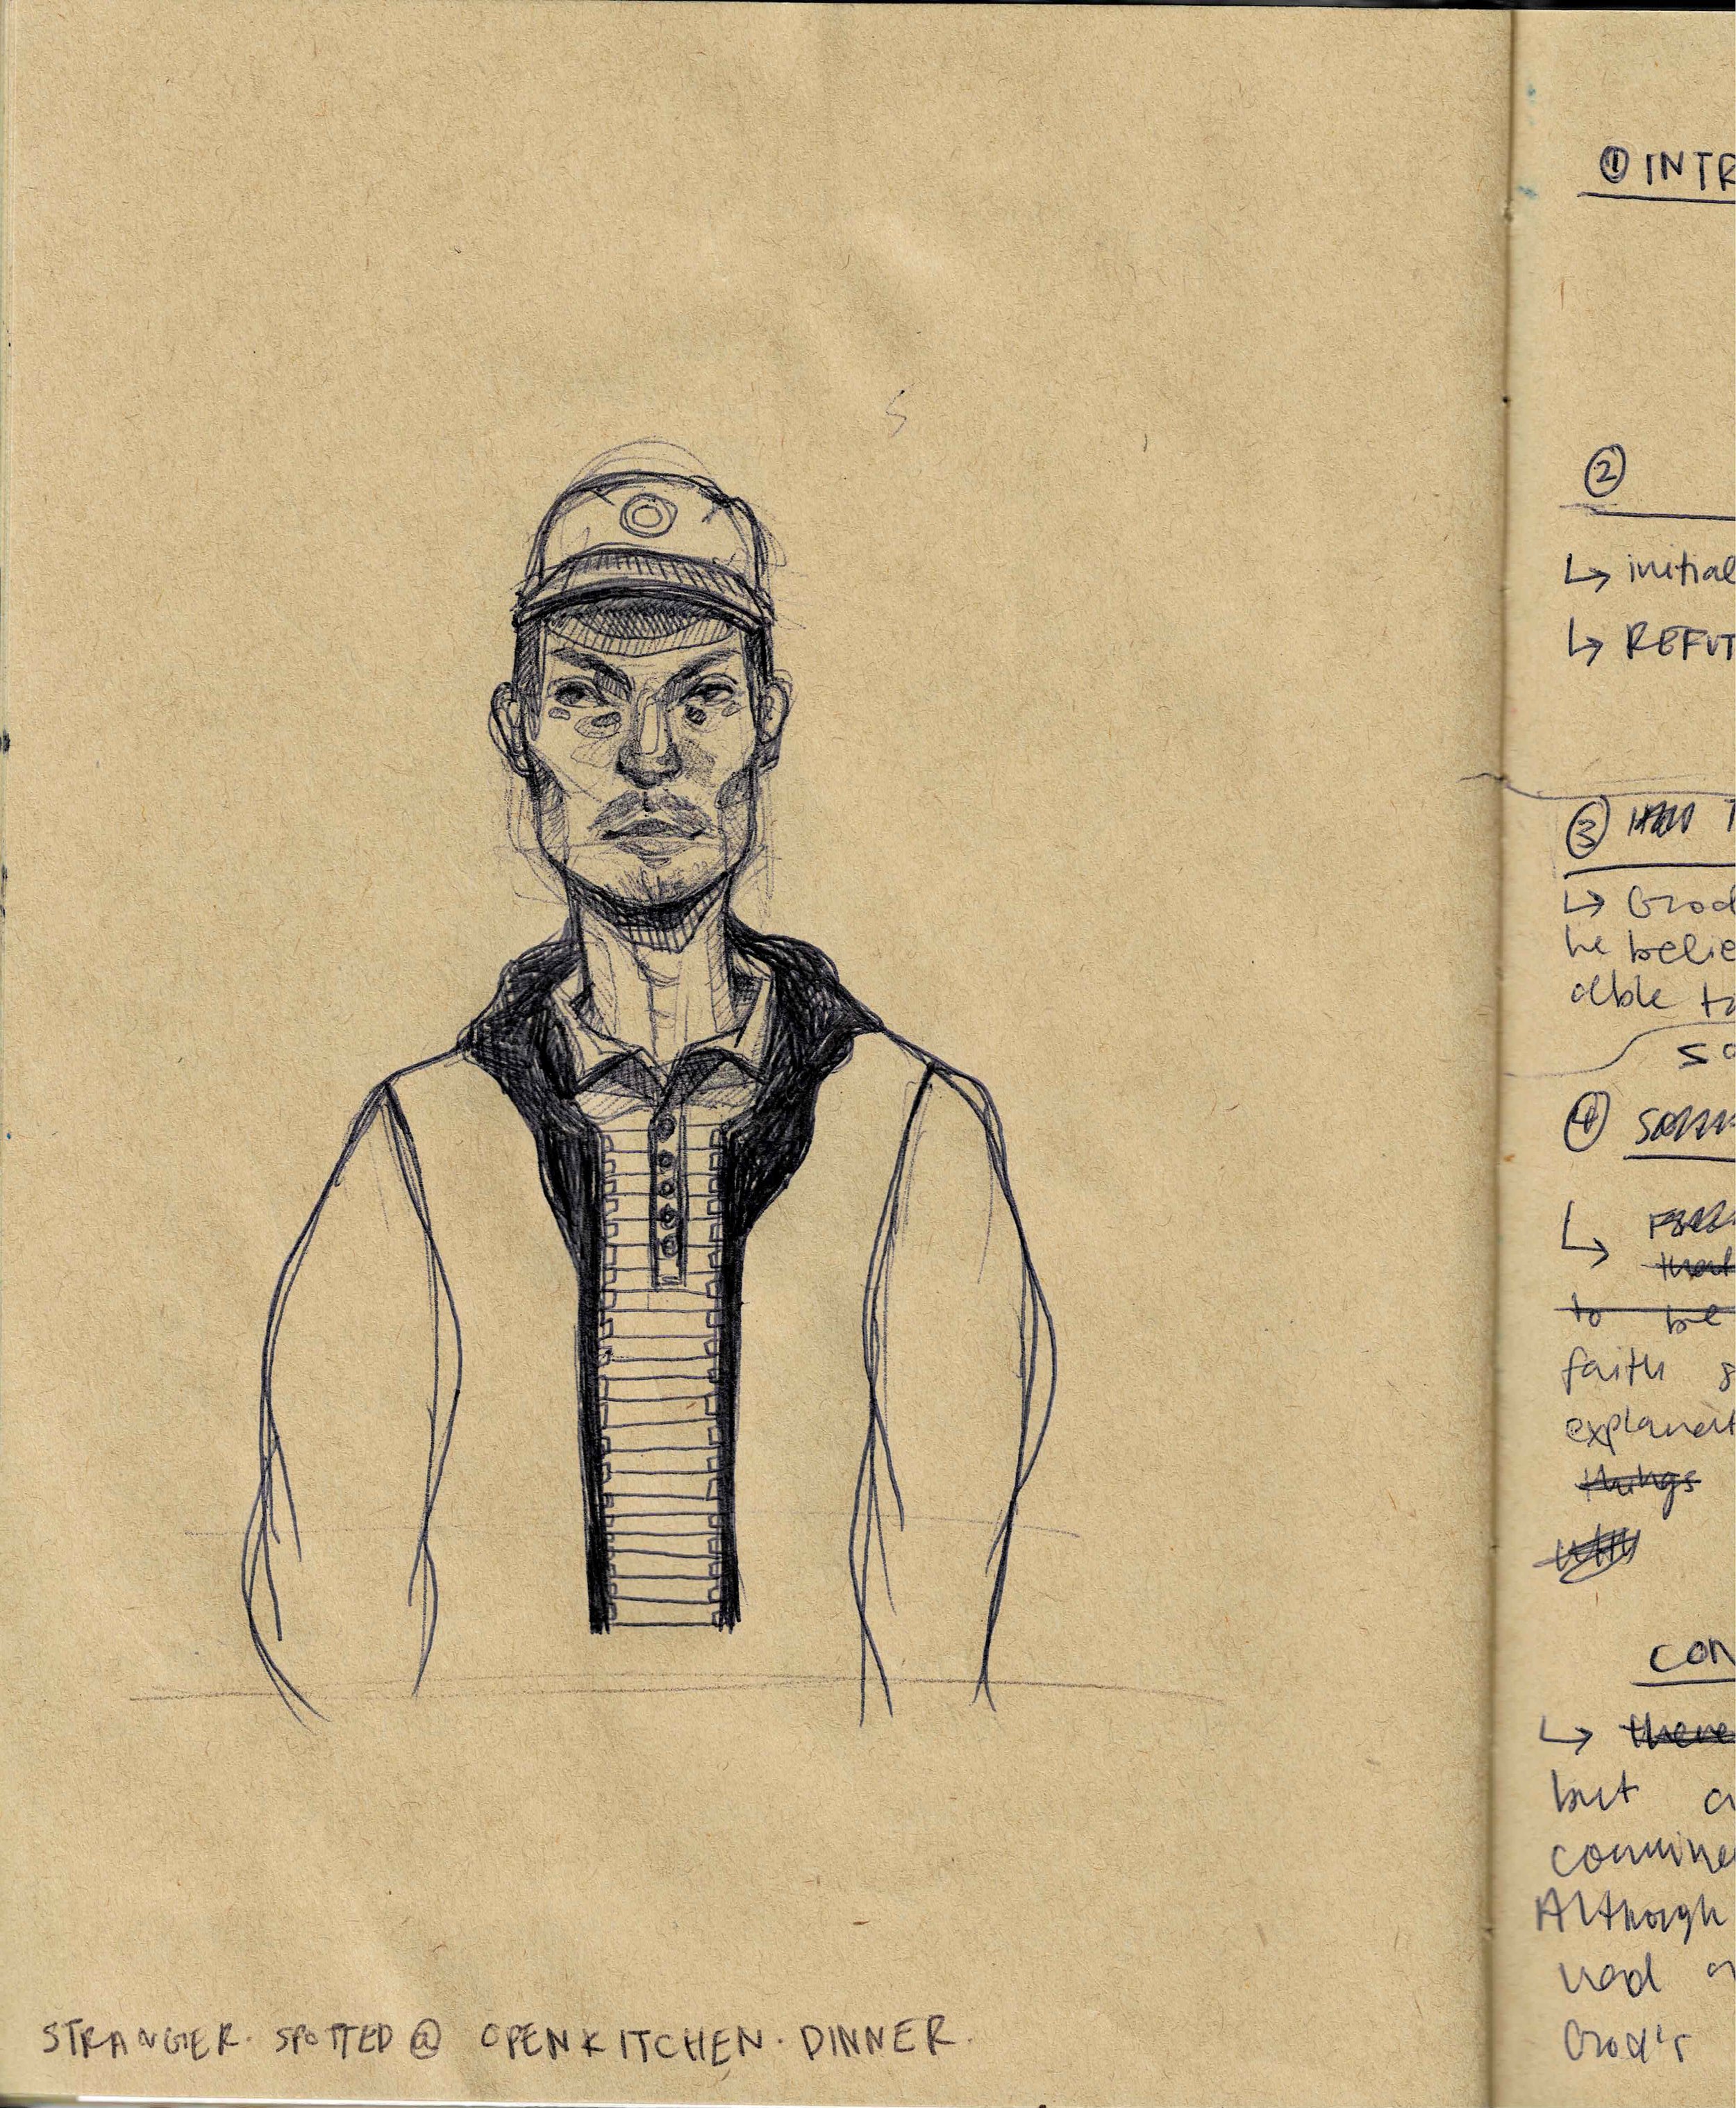 STRANGER. SPOTTED @ OPENKITCHEN. DINNER.
① INTR
②
↳ initial
↳ REFUT
③
↳ God
he belie
able to
so
④
↳
that
to be
faith
explanat
things
CON
↳ there
but
convince
Although
God's